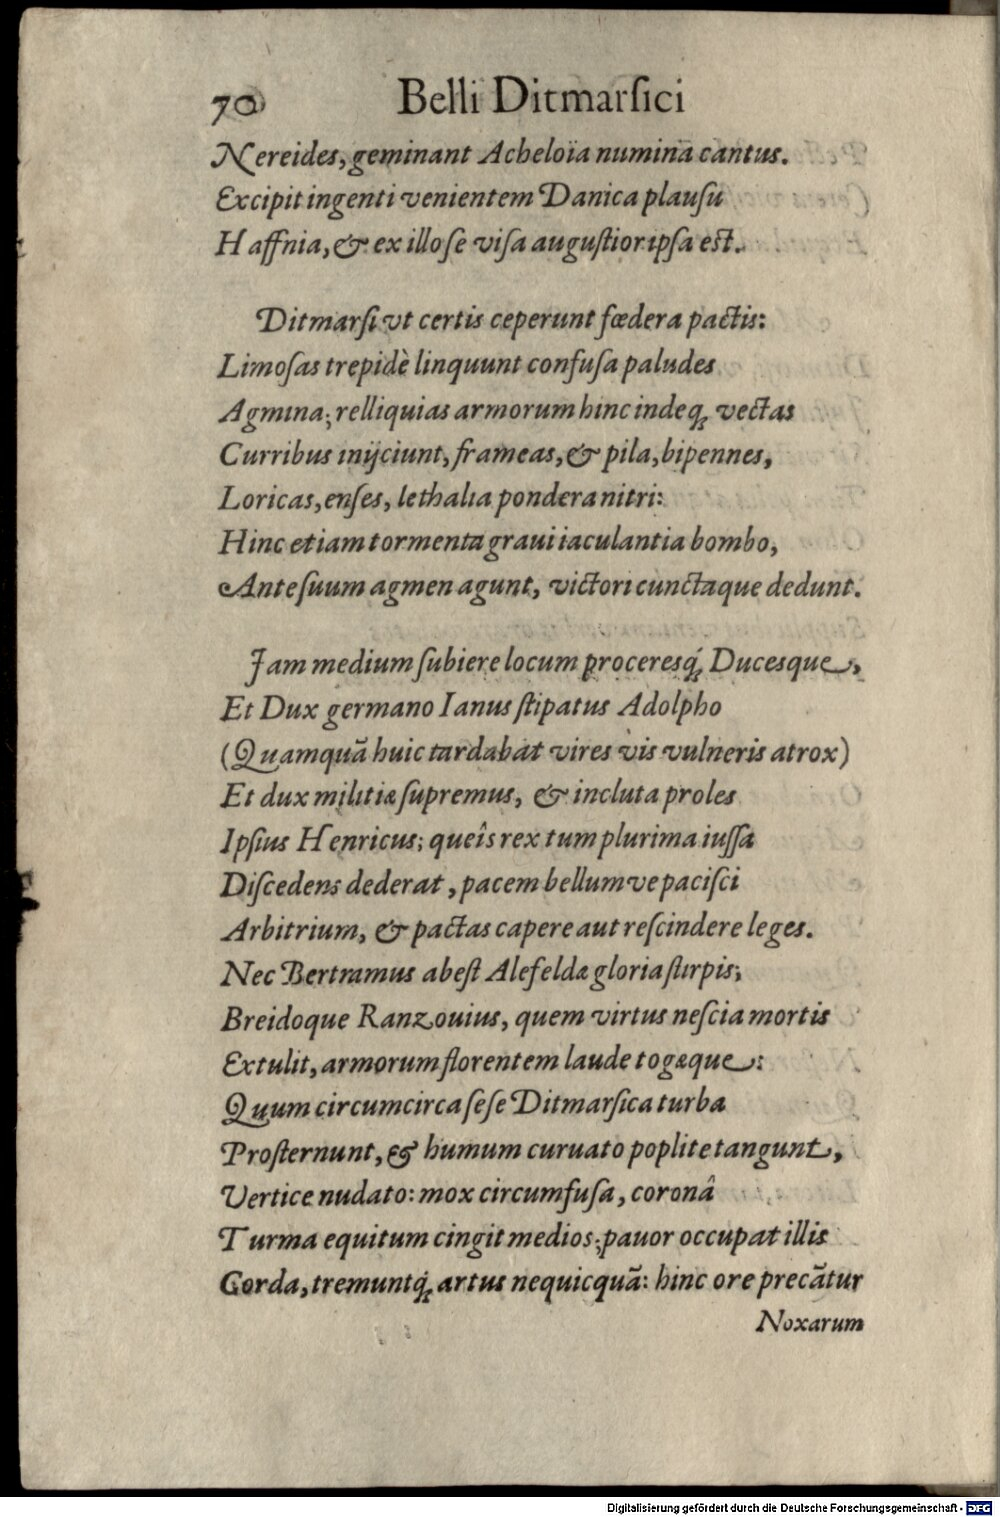 70 Belli Ditmarſici
Nereides, geminant Acheloïa numina cantus.
Excipit ingenti venientem Danica plauſu
Haffnia, & ex illo ſe viſa auguſtior ipſa eſt.
Ditmarſi vt certis ceperunt fœdera pactis:
Limoſas trepidè linquunt confuſa paludes
Agmina; relliquias armorum hinc indeq́; vectas
Curribus inijciunt, frameas, & pila, bipennes,
Loricas, enſes, lethalia pondera nitri:
Hinc etiam tormenta graui iaculantia bombo,
Ante ſuum agmen agunt, victori cunctaque dedunt.
Jam medium ſubiere locum proceresq́; Ducesque,
Et Dux germano Ianus ſtipatus Adolpho
(Quamquã huic tardabat vires vis vulneris atrox)
Et dux militiæ ſupremus, & incluta proles
Ipſius Henricus; queîs rex tum plurima iuſſa
Diſcedens dederat, pacem bellumve paciſci
Arbitrium, & pactas capere aut reſcindere leges.
Nec Bertramus abeſt Alefeldæ gloria ſtirpis;
Breidoque Ranzouius, quem virtus neſcia mortis
Extulit, armorum florentem laude togæque:
Quum circumcirca ſeſe Ditmarſica turba
Proſternunt, & humum curuato poplite tangunt,
Vertice nudato: mox circumfuſa, coronâ
Turma equitum cingit medios; pauor occupat illis
Corda, tremuntq́; artus nequicquã: hinc ore precãtur
Noxarum
Digitalisierung gefördert durch die Deutsche Forschungsgemeinschaft - DFG